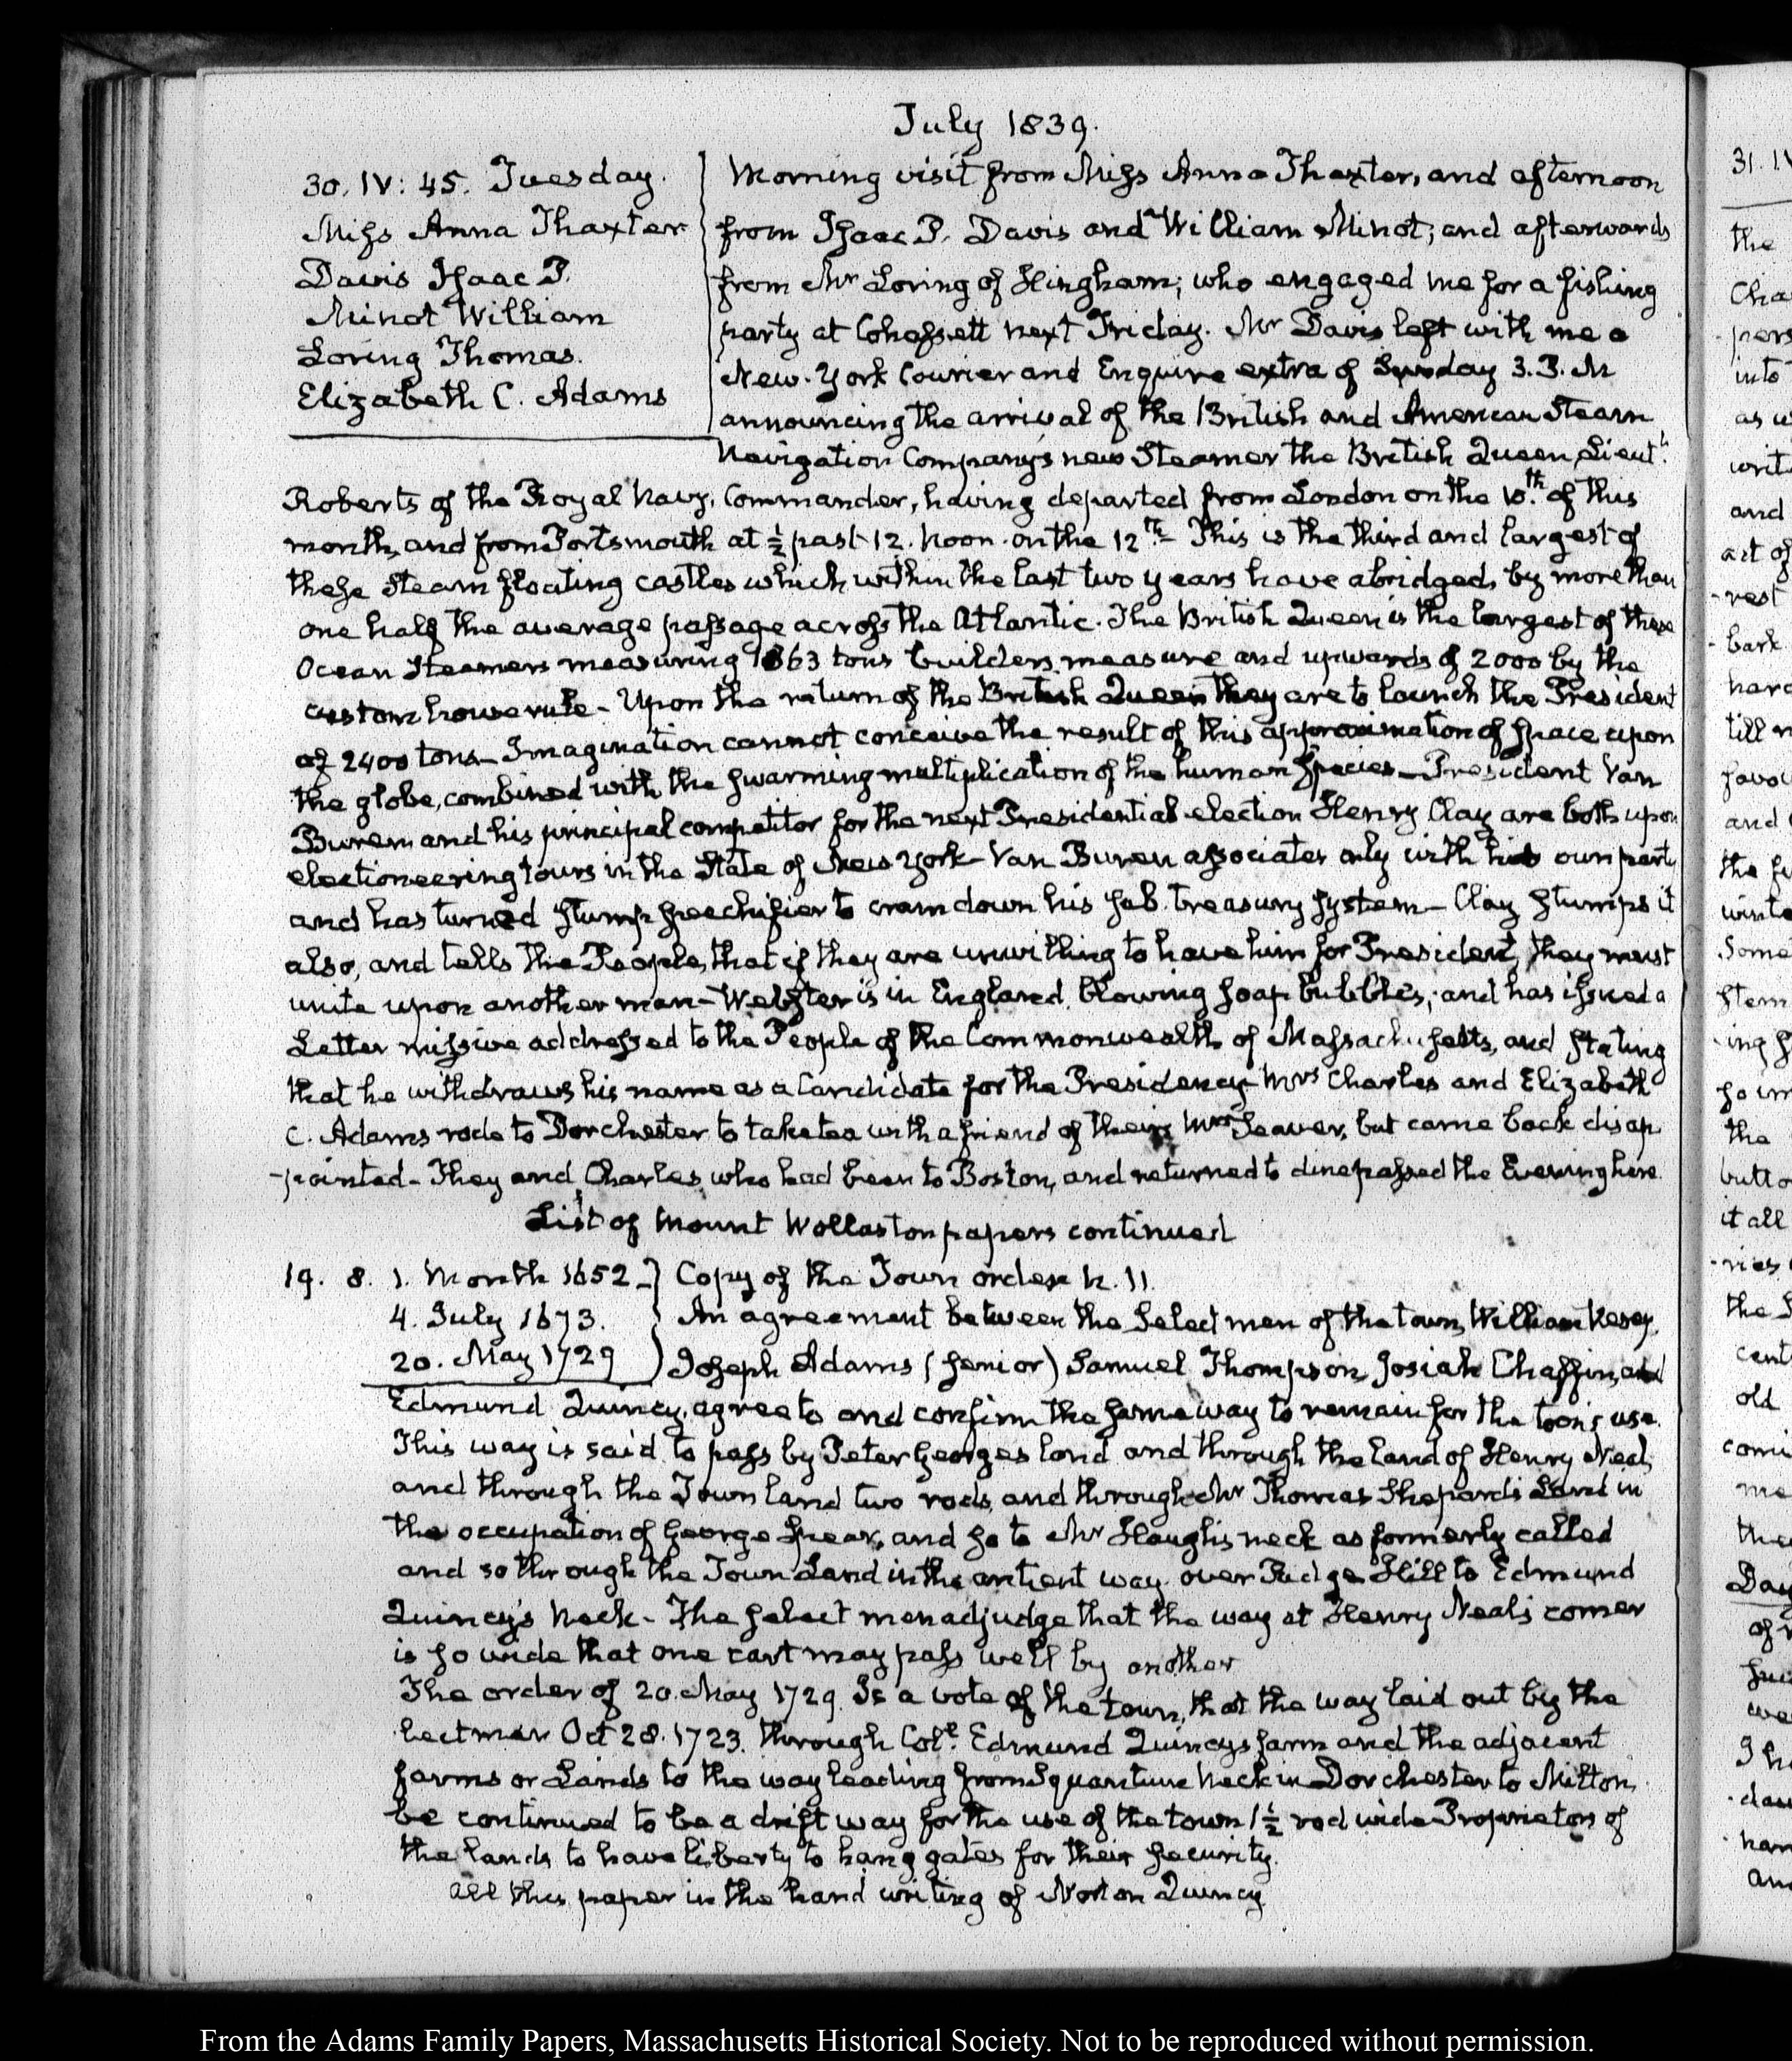 July 1839.
30. IV: 45. Tuesday.
Miſs Anna Thaxter
Davis Iſaac P.
Minot William
Loring Thomas.
Elizabeth C. Adams
Morning visit from Miſs Anna Thaxter, and afternoon
from Iſaac P. Davis and William Minot; and afterwards
from Mr Loring of Hingham; who engaged me for a fishing
party at Cohaſsett next Friday. Mr Davis left with me a
New-York Courier and Enquire extra of Sunday 3. P. M
announcing the arrival of the British and American Steam
Navigation Company's new Steamer the British Queen, Lieut.t
Roberts of the Royal Navy, Commander, having departed from London on the 10.th of this
month, and from Portsmouth at ½ past 12. Noon on the 12th- This is the third and largest of
theſe Steam floating castles which within the last two years have abridged, by more than
one half the average paſsage acroſs the Atlantic. The British Queen is the largest of these
Ocean Steamers measuring 1863 tons builders measure and upwards of 2000 by the
custom house rule- Upon the return of the British Queen they are to launch the President
of 2400 tons- Imagination cannot conceive the result of this approximation of ſpace upon
the globe, combined with the ſwarming multiplication of the human ſpecies- President Van
Buren and his principal competitor for the next Presidential election Henry Clay are both upon
electioneering tours in the State of New York- Van Buren aſsociates only with his own party
and has turned ſtump ſpeechifier to cram down his ſub treasury ſystem- Clay ſtumps it
also, and tells the People, that if they are unwilling to have him for President, they must
unite upon another man- Webſter is in England, blowing ſoap bubbles; and has iſsued a
Letter miſsive addreſsed to the People of the Commonwealth of Maſsachuſetts, and ſtating
that he withdraws his name as a Candidate for the Presidency- Mrs Charles and Elizabeth
C. Adams rode to Dorchester to take tea with a friend of theirs Mrs Seaver, but came back disap
-pointed- They and Charles who had been to Boston, and returned to dine paſsed the Evening here.
List of Mount Wollaston papers continued
19. 8. 1. Month 1652-} Copy of the Town order N. 11.
4. July 1673. } An agreement between the Select men of the town, William Vesey,
20. May 1729 } Joſeph Adams (ſenior) Samuel Thompson, Josiah Chaffin, and
Edmund Quincy, agree to and confirm the ſame way to remain for the town's use.
This way is said to paſs by Peter Georges land and through the land of Henry Neal,
and through the Town land two rods, and through Mr Thomas Shepard's Land in
the occupation of George Spear, and ſo to Mr Hough's neck as formerly called
and so through the Town Land in the antient way over Judge Hill to Edmund
Quincy's Neck- The ſelect men adjudge that the way at Henry Neal's corner
is ſo wide that one cart may paſs well by another
The order of 20. May 1729. Is a vote of the town, that the way laid out by the
lect men Oct 28. 1723. through Col.l Edmund Quincys farm and the adjacent
farms or Lands to the way leading from Squantum Neck in Dorchester to Milton,
be continued to be a drift way for the use of the town 1½ rod wide Proprietors of
the lands to have liberty to hang gates for their ſecurity.
All this paper in the hand writing of Norton Quincy.
From the Adams Family Papers, Massachusetts Historical Society. Not to be reproduced without permission.